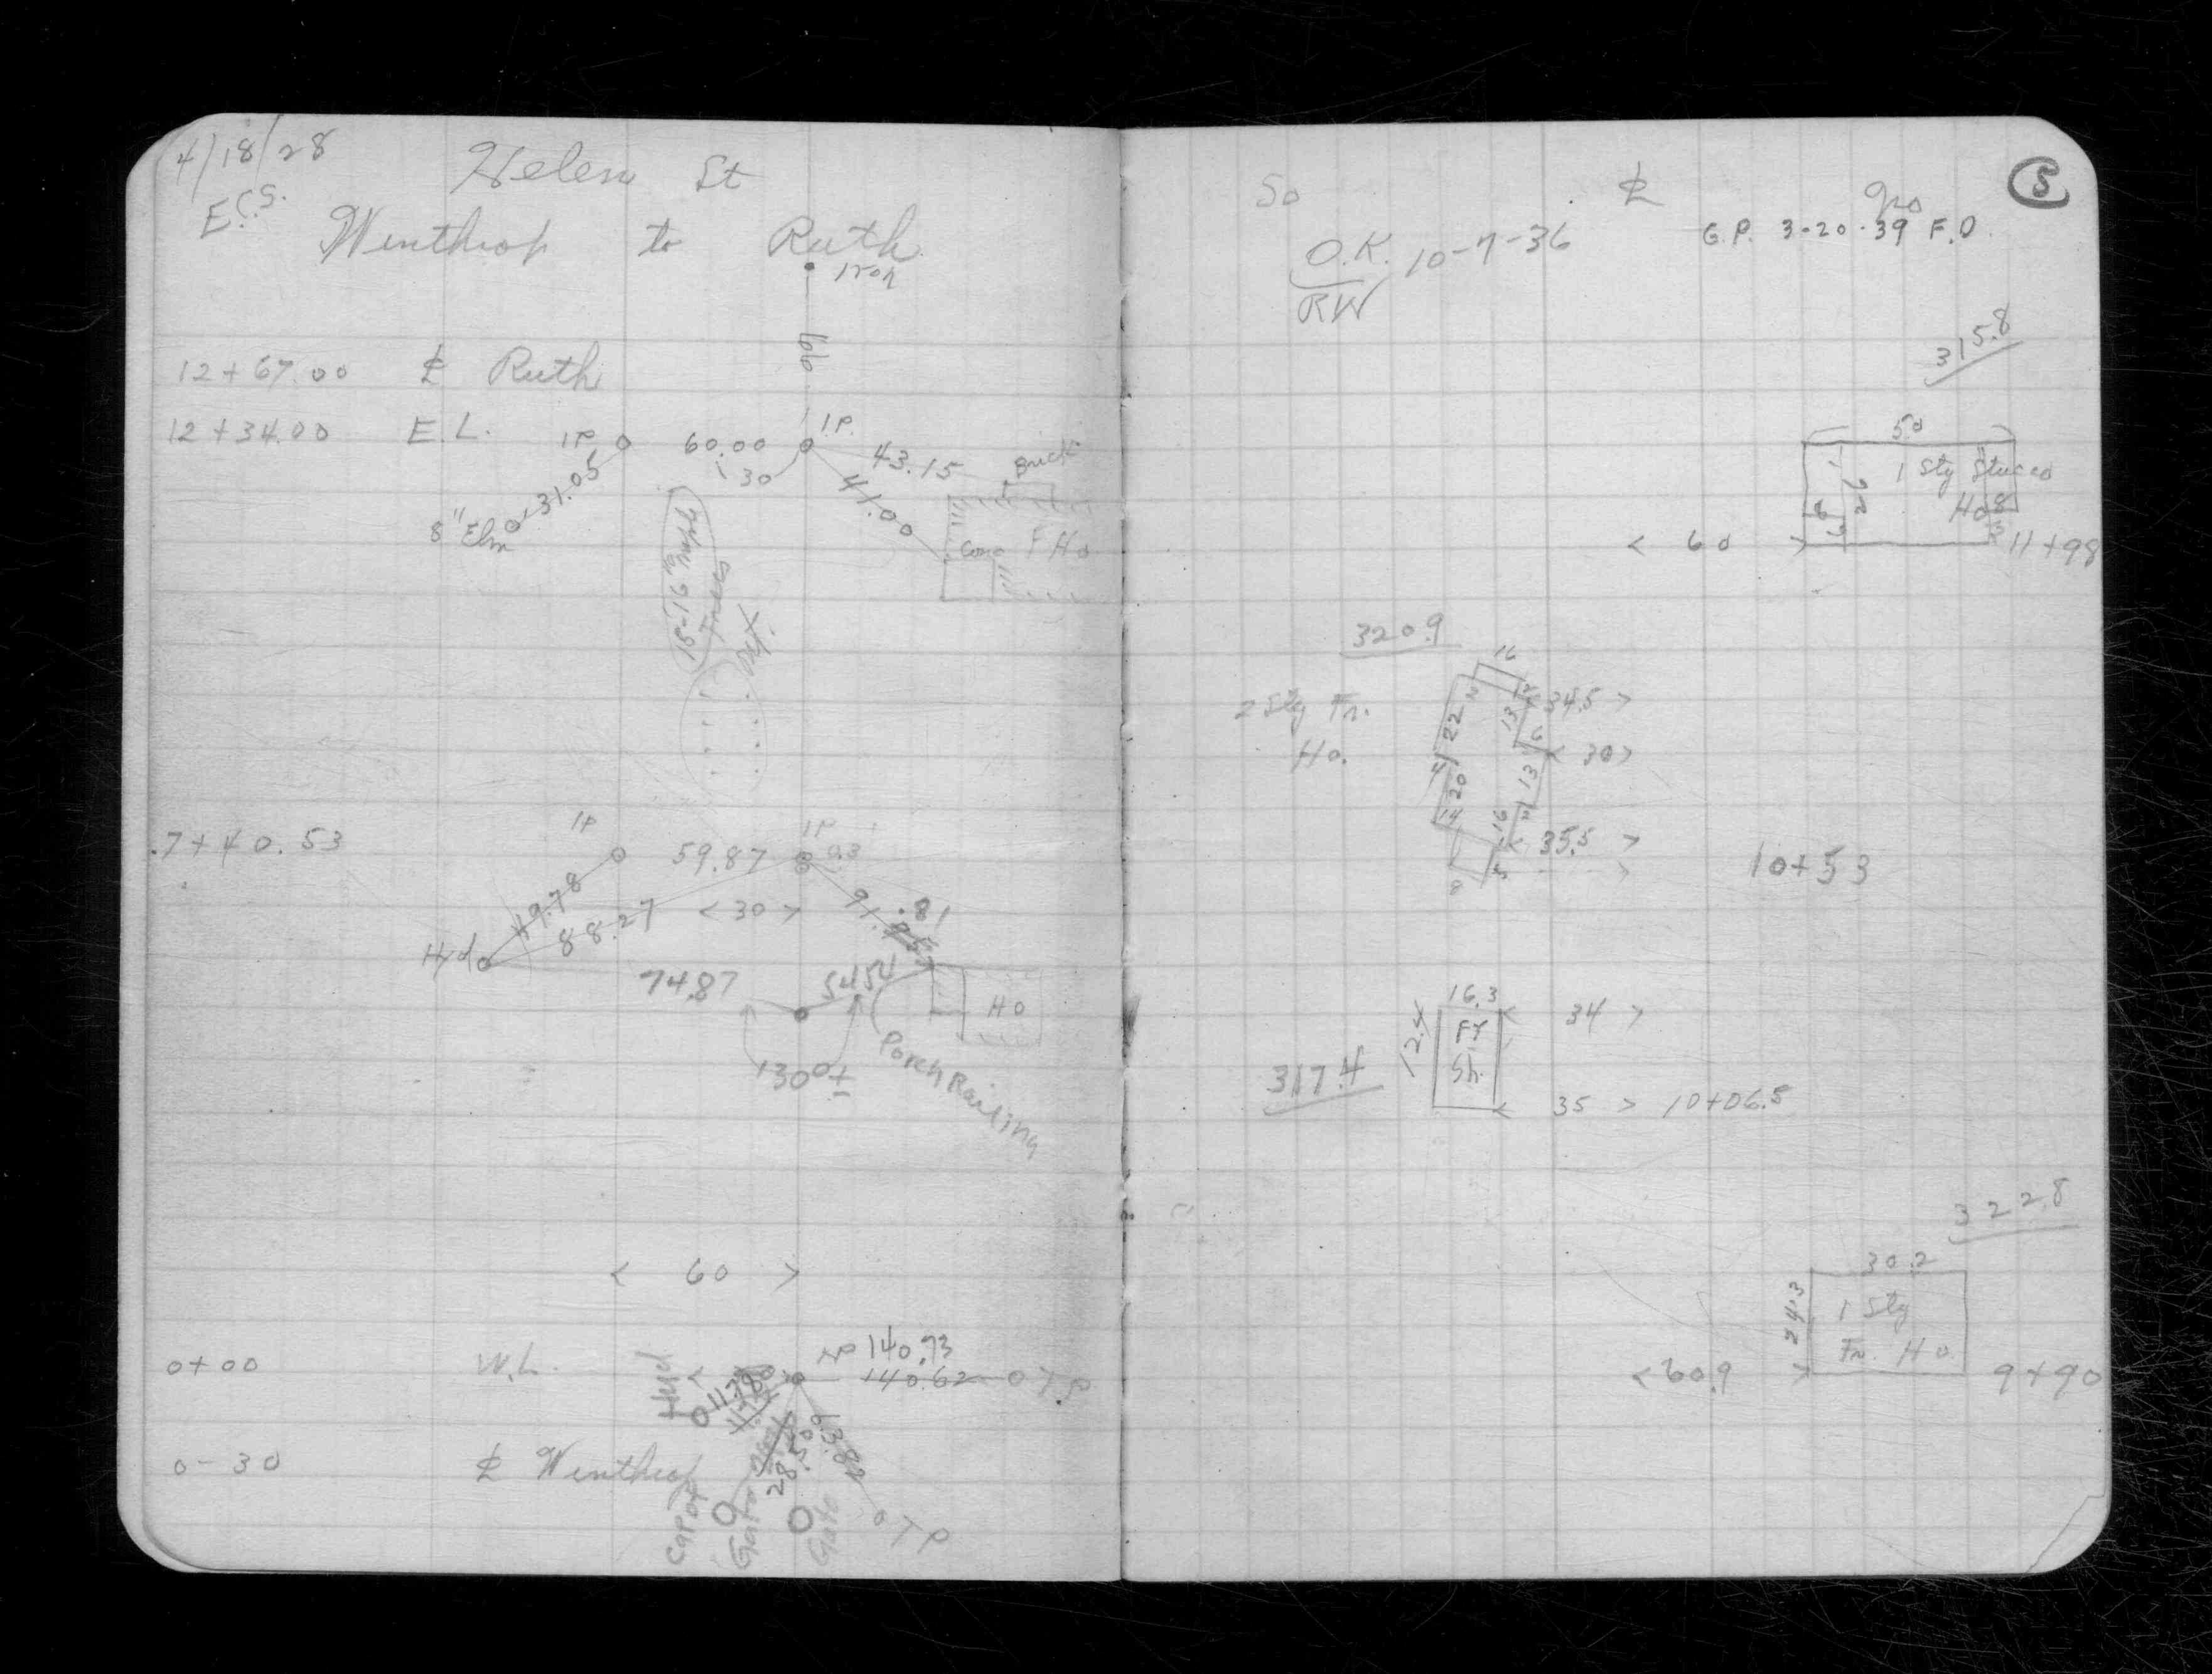 4/18/28
E.C.S.
Helen St
Winthrop to Ruth
Iron
99
12+67.00 ℄ Ruth
12+34.00 E.L. IP 60.00 I.P.
30
43.15 Brick
31.05
41.00
8" Elm
Conc F Ho
18-16
Trees
7+40.53
IP
59.87
IP
0.3
49.78
88.27
< 30 >
91.
.81
Hyd
74.87
54.54
Ho
130°±
Porch Railing
< 60 >
0+00 W.L.
140.73
140.62 T.P
Hyd
117.80
28.50
48.39
0-30 ℄ Winthrop
Cap of
Gate
Gate
T P
So ℄ No
5
O.K. 10-7-36
RW
G.P. 3-20-39 F.O.
315.8
50
1 Sty Stucco
Ho
26
8
8
3
< 60 > 11+98
320.9
2 Sty Fr.
Ho.
16
2
22
13
6
< 34.5 >
< 30 >
4
20
13
14
16
2
< 35.5 >
8
10+53
16.3
12.4
Fr
Sh.
< 34 >
317.4
< 35 > 10+06.5
322.8
30.2
24.3
1 Sty
Fr. Ho
< 60.9 > 9+90